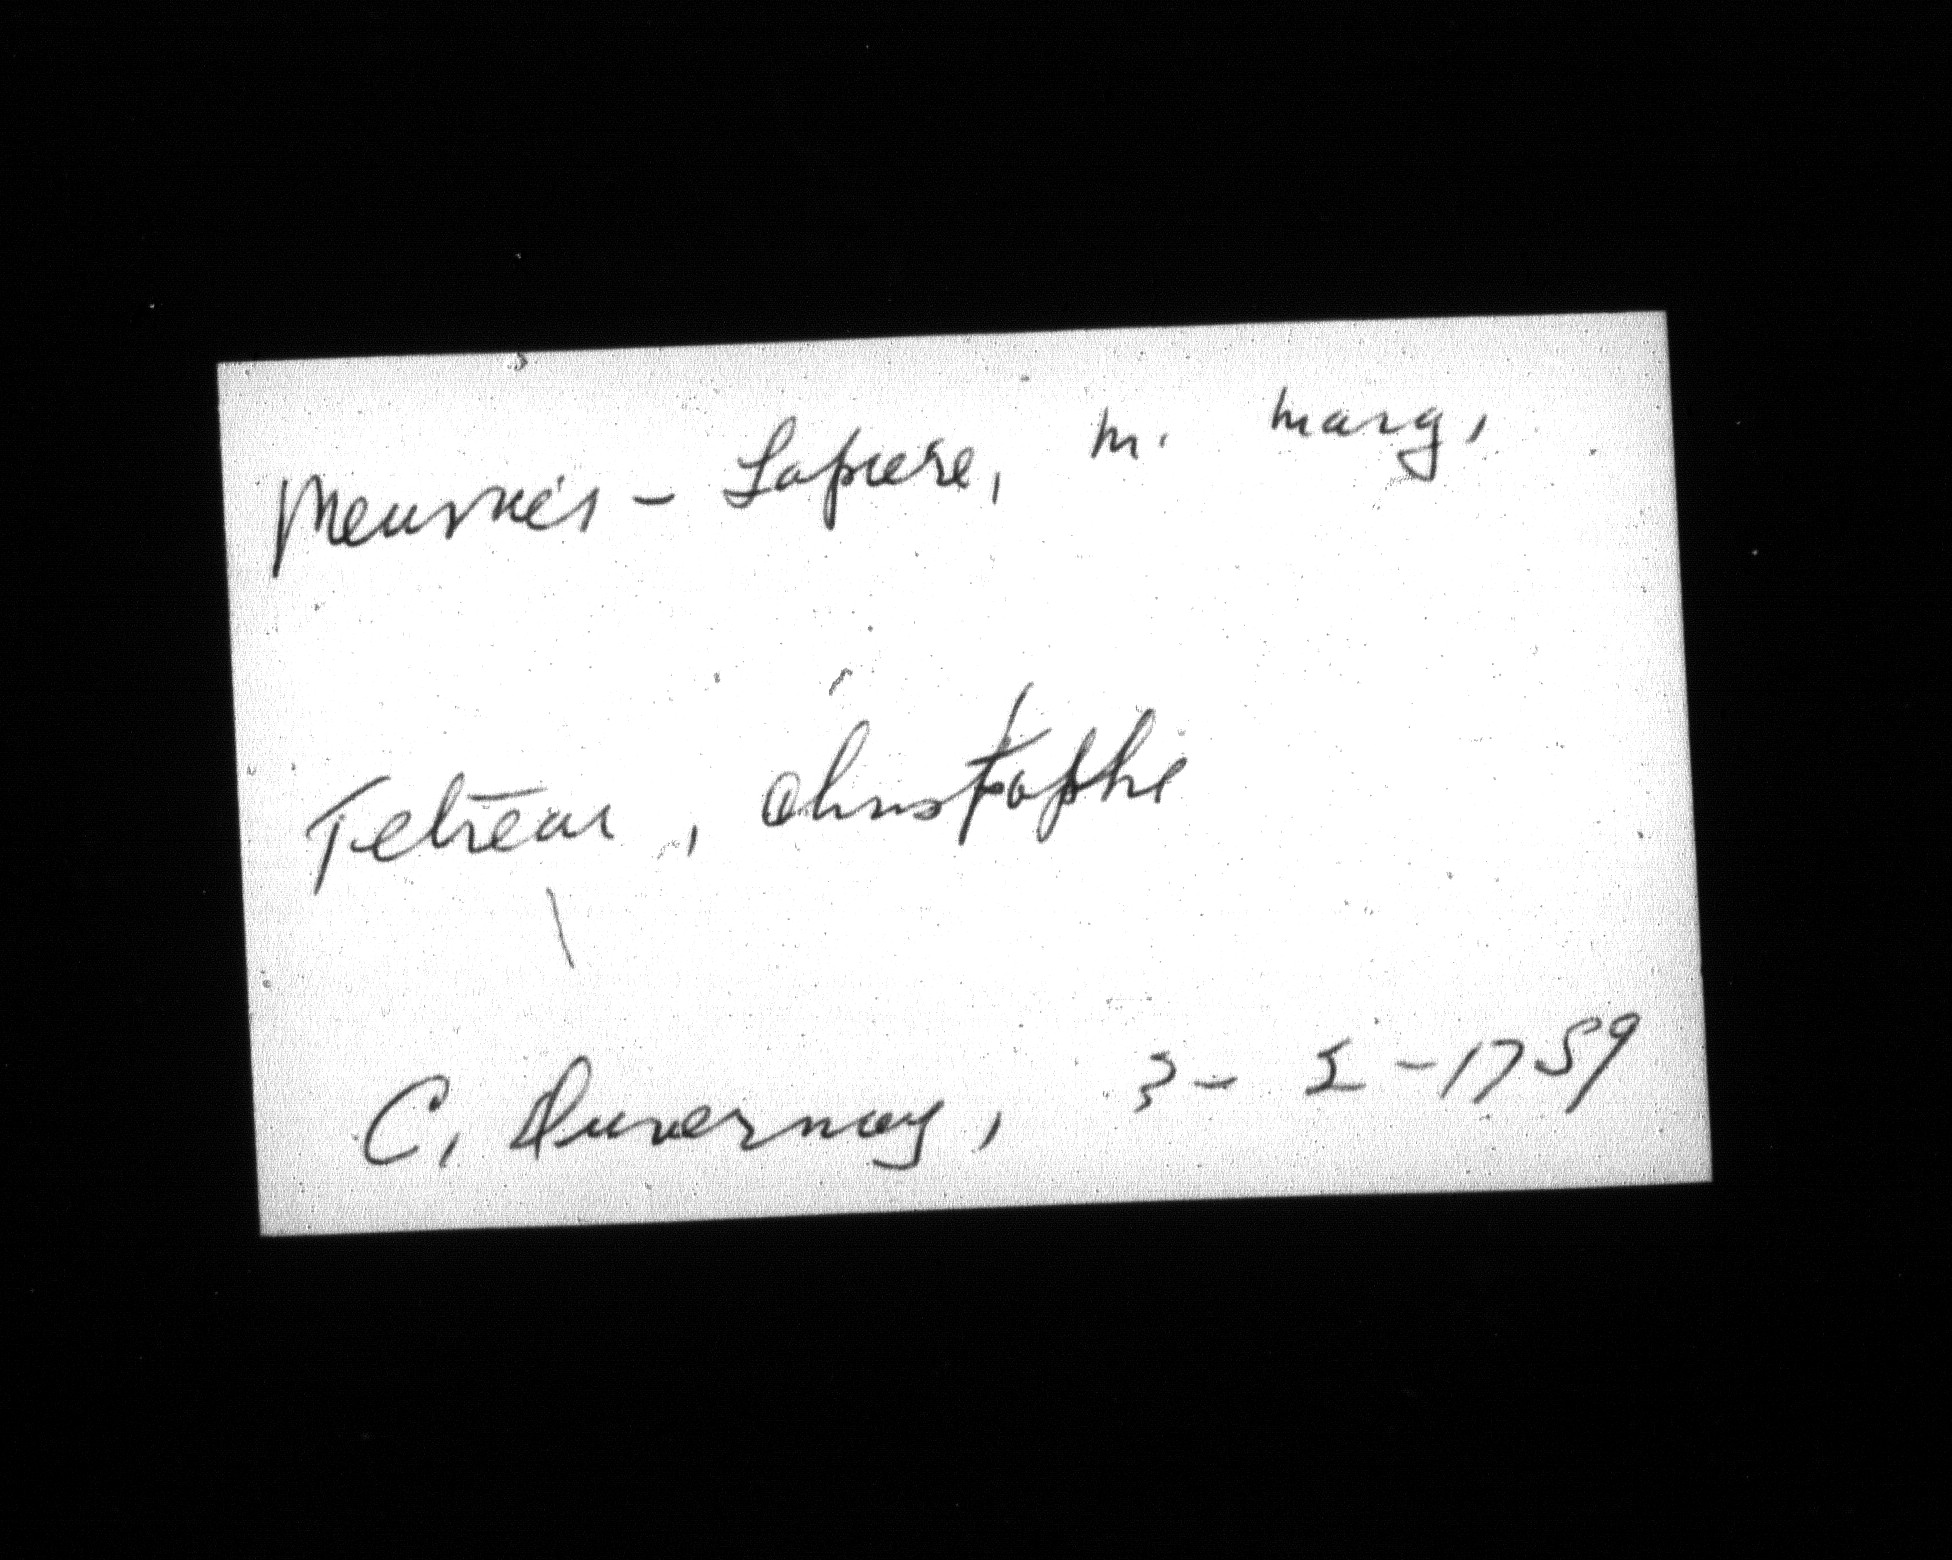 Meunier - Lapierre, m. marg.
Tetreau, Christophe
C. Duvernay, 3 - 2 - 1759